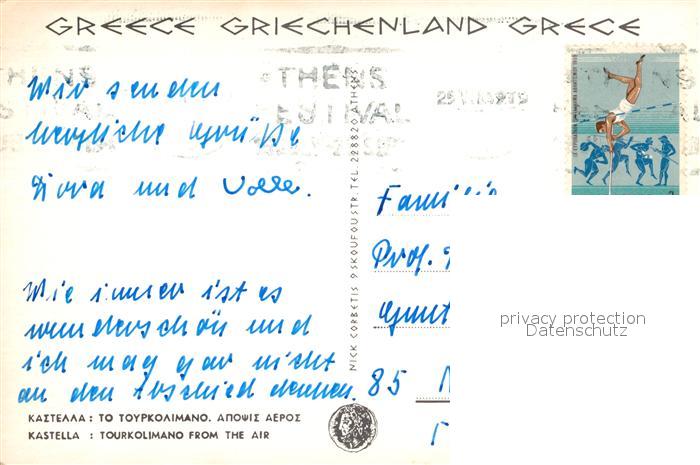 GREECE GRIECHENLAND GRECE
ATHENS
FESTIVAL
Wir senden
herzliche Grüße
Dora und
Wie immer ist es
wunderschön und
ich mag gar nicht
an den Abschied denken.
NICK CORBETIS 9 SKOUFOU STR. TEL. 228820 ATHENS
Familie
Prof.
85
privacy protection
Datenschutz
ΚΑΣΤΕΛΛΑ : ΤΟ ΤΟΥΡΚΟΛΙΜΑΝΟ. ΑΠΟΨΙΣ ΑΕΡΟΣ
KASTELLA : TOURKOLIMANO FROM THE AIR